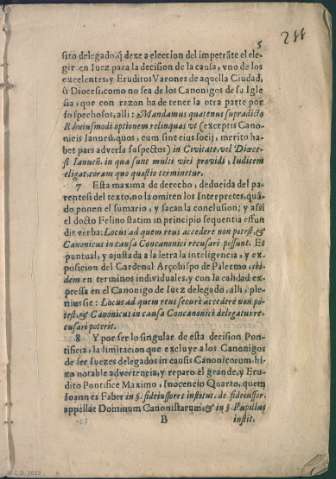 5
244
sito delegado, q̃ dexe a eleccion del impetrãte el ele-
gir en Iuez para la decision de la causa, vno de los
excelentes, y Eruditos Varones de aquella Ciudad,
ù Diocesi, como no sea de los Canonigos de su Igle
sia, que con razon ha de tener la otra parte por
sospechosos, alli: Mandamus quatenus supradicto
R. huiusmodi optionem relinquas vt (exceptis Cano-
nicis Ianueñ. quos, cum sint eius socij, merito ha-
bet pars adversa suspectos) in Civitate, vel Diœce-
si Ianueñ. in qua sunt multi viri providi, Iudicem
eligat, coram quo quæstio terminetur.
7 Esta maxima de derecho, deducida del pa-
rentesi del texto, no la omiten los Interpretes, quã-
do ponen el sumario, y sacan la conclusion; y assi
el docto Felino statim in principio sequentia effun
dit verba: Locus ad quem reus accedere non potest, &
Canonicus in causa Concanonici recusari possunt. Es
puntual, y ajustada a la letra la inteligencia, y ex-
posicion del Cardenal Arçobispo de Palermo ibi-
dem en terminos individuales, y con la calidad ex-
pressa en el Canonigo de Iuez delegado, alli, ple-
nius sic: Locus ad quem reus securè accedere non po-
test, & Canonicus in causa Concanonici delegatus re-
cusari poterit.
8 Y por ser lo singular de esta decision Pon-
tificia, la limitacion que excluye a los Canonigos
de ser Iuezes delegados in causis Canonicorum, hi-
zo notable advertencia, y reparo el grande, y Eru
dito Pontifice Maximo, Inocencio Quarto, quem
Ioannes Faber in §. fideiussores institut. de fideiussor.
appellat Dominum Canonistarum, & in §. Pupillus
B
instit.